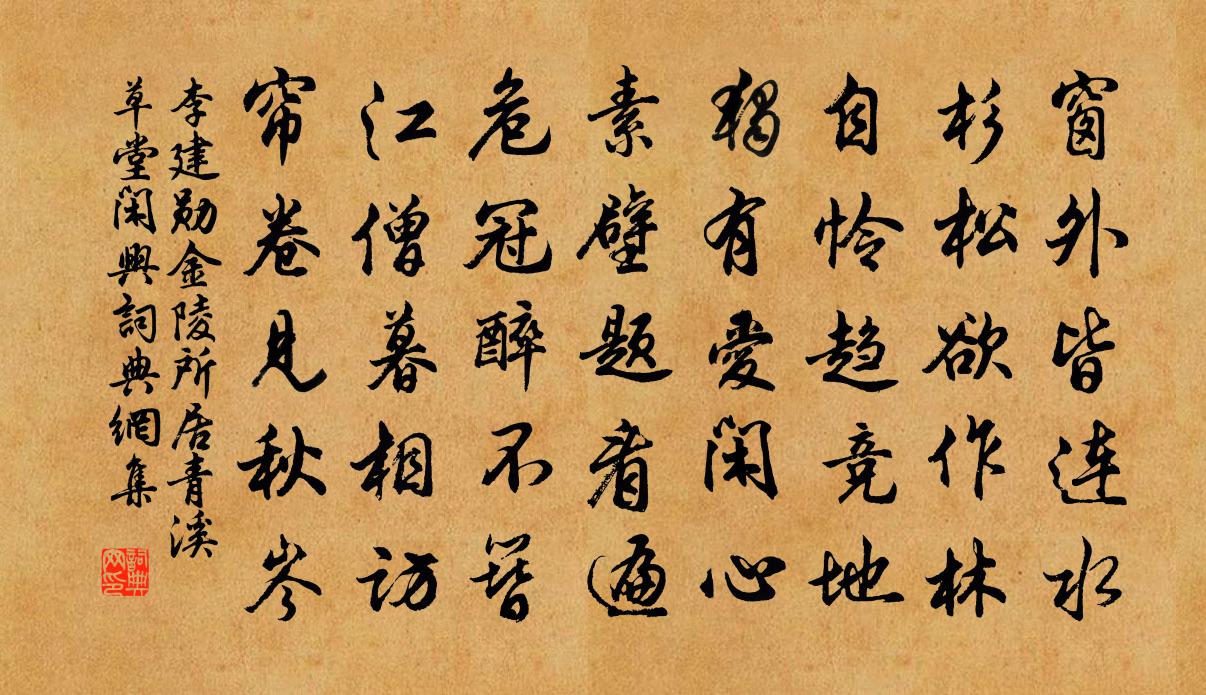 窗外皆连水
杉松欲作林
自怜趋竞地
独有爱闲心
素壁题看遍
危冠醉不簪
江僧暮相访
帘卷见秋岑
李建勋金陵所居青溪
草堂闲兴詞典網集
詞典网印